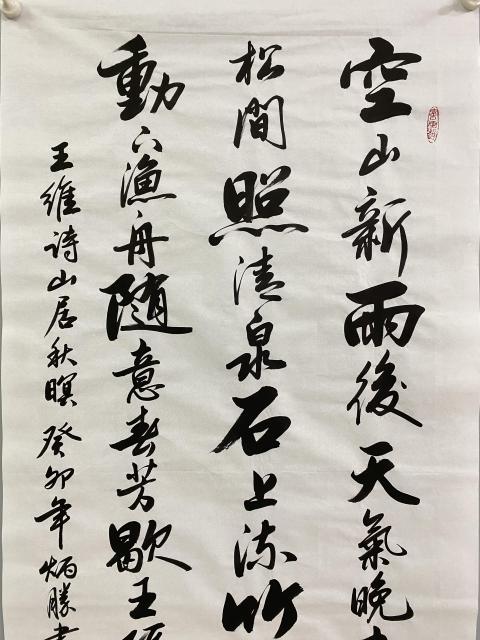 空山新雨後天氣晚
松間照清泉石上流竹
動下漁舟隨意春芳歇王
王維詩山居秋暝癸卯年炳勝書